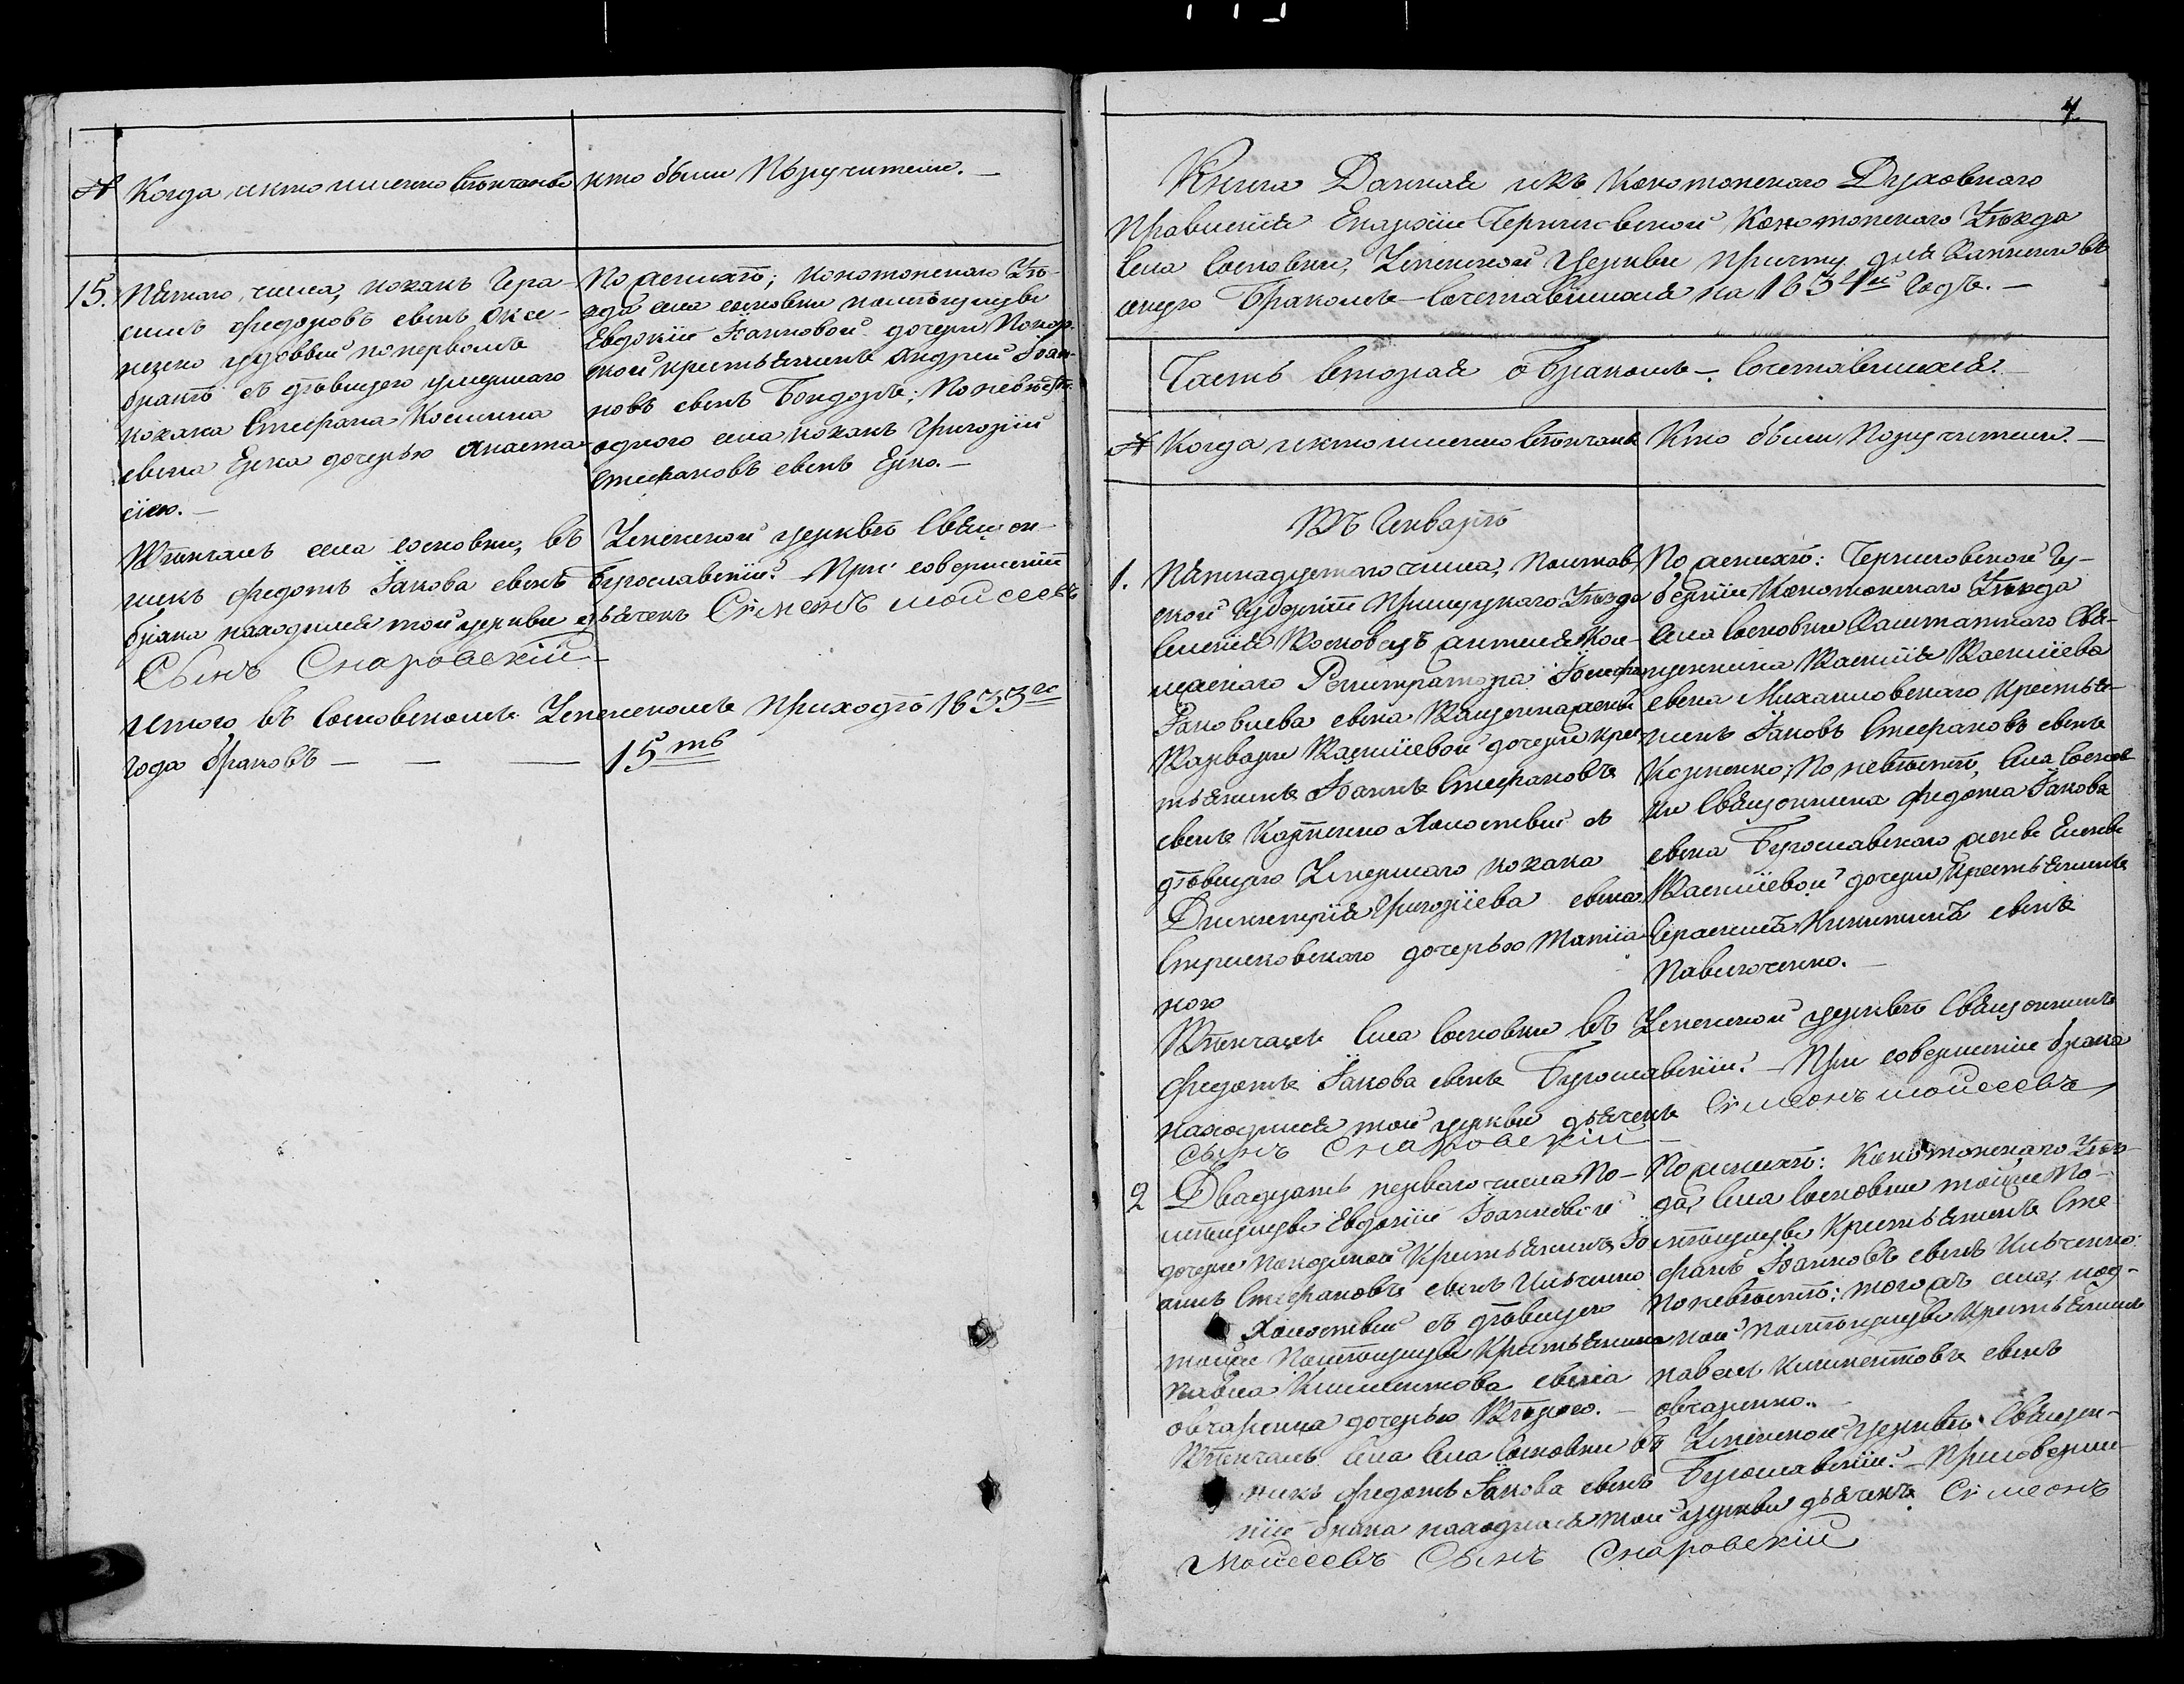 № Когда и кто именно вѣнчанъ кто были Поручители. —
15. Пятаго, числа, козакъ Гера-
симъ Федоровъ сынъ Оксе-
ненко удовый по первомъ
бракѣ съ дѣвицею умершаго
козака Стефана Косьмина
сына Ерка дочерью Анаста-
сіею. —
По женихѣ; Конотопскаго Уѣ-
зда села Сосновки помѣщицы
Евдокіи Іоанновой дочери Покор-
ской крестьянинъ Андрей Іоан-
новъ сынъ Бондарь; По невѣстѣ
одного села козакъ Григорій
Стефановъ сынъ Ерко. —
Вѣнчалъ села Сосновки, въ Успенской церквѣ Священ-
никъ Федотъ Іакова сынъ Бугославскій. — При совершеніи
брака находился той церкви дьячекъ Симеонъ Моисеевъ
Сынъ Снаровскій —
Итого въ Сосновскомъ Успенскомъ Приходѣ 1833го
года браковъ — — — 15ть
4
Книга Данная изъ Конотопскаго Духовнаго
Правленія Епархіи Черниговской Конотопскаго Уѣзда
Села Сосновки, Успенской Церкви причту для записки въ
оную Бракомъ — Сочетавшихся на 1834й Годъ. —
Часть вторая о Бракомъ — Сочетавшихся. —
№ Когда и кто именно вѣнчанъ Кто были Поручители. —
Въ Генварѣ
1. Пятнадцатаго числа, Полтав-
ской Губерніи Прилуцкаго Уѣзда
Селенія Восковецъ жителя Кол-
лежскаго Регистратора Іосифа
Яковлева сына жены
Варвары Василіевой дочери крес-
тьянинъ Іоаннъ Стефановъ
сынъ Корпенко Холостый съ
дѣвицею Умершаго козака
Димитрія Григоріева сына
Стрилковскаго дочерью Татіа-
ною
По женихѣ: Черниговской Гу-
берніи Конотопскаго Уѣзда
Села Сосновки Заштатнаго Свя-
щенника Василія Василіева
сына Михайловскаго Крестья-
нинъ Іаковъ Стефановъ сынъ
Корпенко; По невѣстѣ, Села Соснов-
ки Священника Федота Іакова
сына Бугославскаго жены Елены
Василіевой дочери Крестьянинъ
Герасимъ Никитинъ сынъ
Павлюченко. —
Вѣнчалъ Села Сосновки въ Успенской церквѣ Священникъ
Федотъ Іакова сынъ Бугославскій. — При совершеніи брака
находился той церкви дьячекъ Симеонъ Моисеевъ
Сынъ Снаровскій —
2 Двадцать перваго числа По-
мѣщицы Евдокіи Іоанновой
дочери Покорской Крестьянинъ Іо-
аннъ Стефановъ сынъ Ильченко
Холостый съ дѣвицею
тойже Помѣщицы Крестьянина
Павла Климентова сына
Овчаренка дочерью Вѣрою. —
По женихѣ: Конотопскаго Уѣз-
да, Села Сосновки тойже По-
мѣщицы Крестьянинъ Сте-
фанъ Іоанновъ сынъ Ильченко:
По невѣстѣ: того жъ села, под-
ной Помѣщицы Крестьянинъ
Павелъ Климентовъ сынъ
Овчаренко. —
Вѣнчалъ Села Села Сосновки въ Успенской церквѣ Священ-
никъ Федотъ Іакова сынъ Бугославскій. — При соверше-
ніи брака находился той церкви дьячекъ Симеонъ
Моисеевъ Сынъ Снаровскій